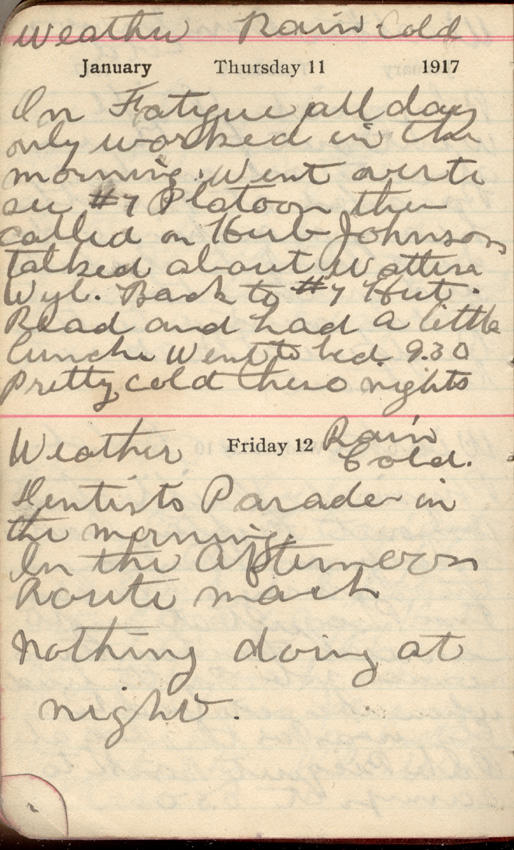 Weather Rain Cold
January Thursday 11 1917
On Fatigue all day
only worked in the
morning. Went over to
see #7 Platoon then
called on Herb Johnson
talked about
Back to #7 Hut.
Read and had a little
lunch Went to bed 9.30
Pretty cold these nights
Weather Friday 12 Rain
Cold.
Dentists Parade in
the morning.
In the Afternoon
Route march
Nothing doing at
night.